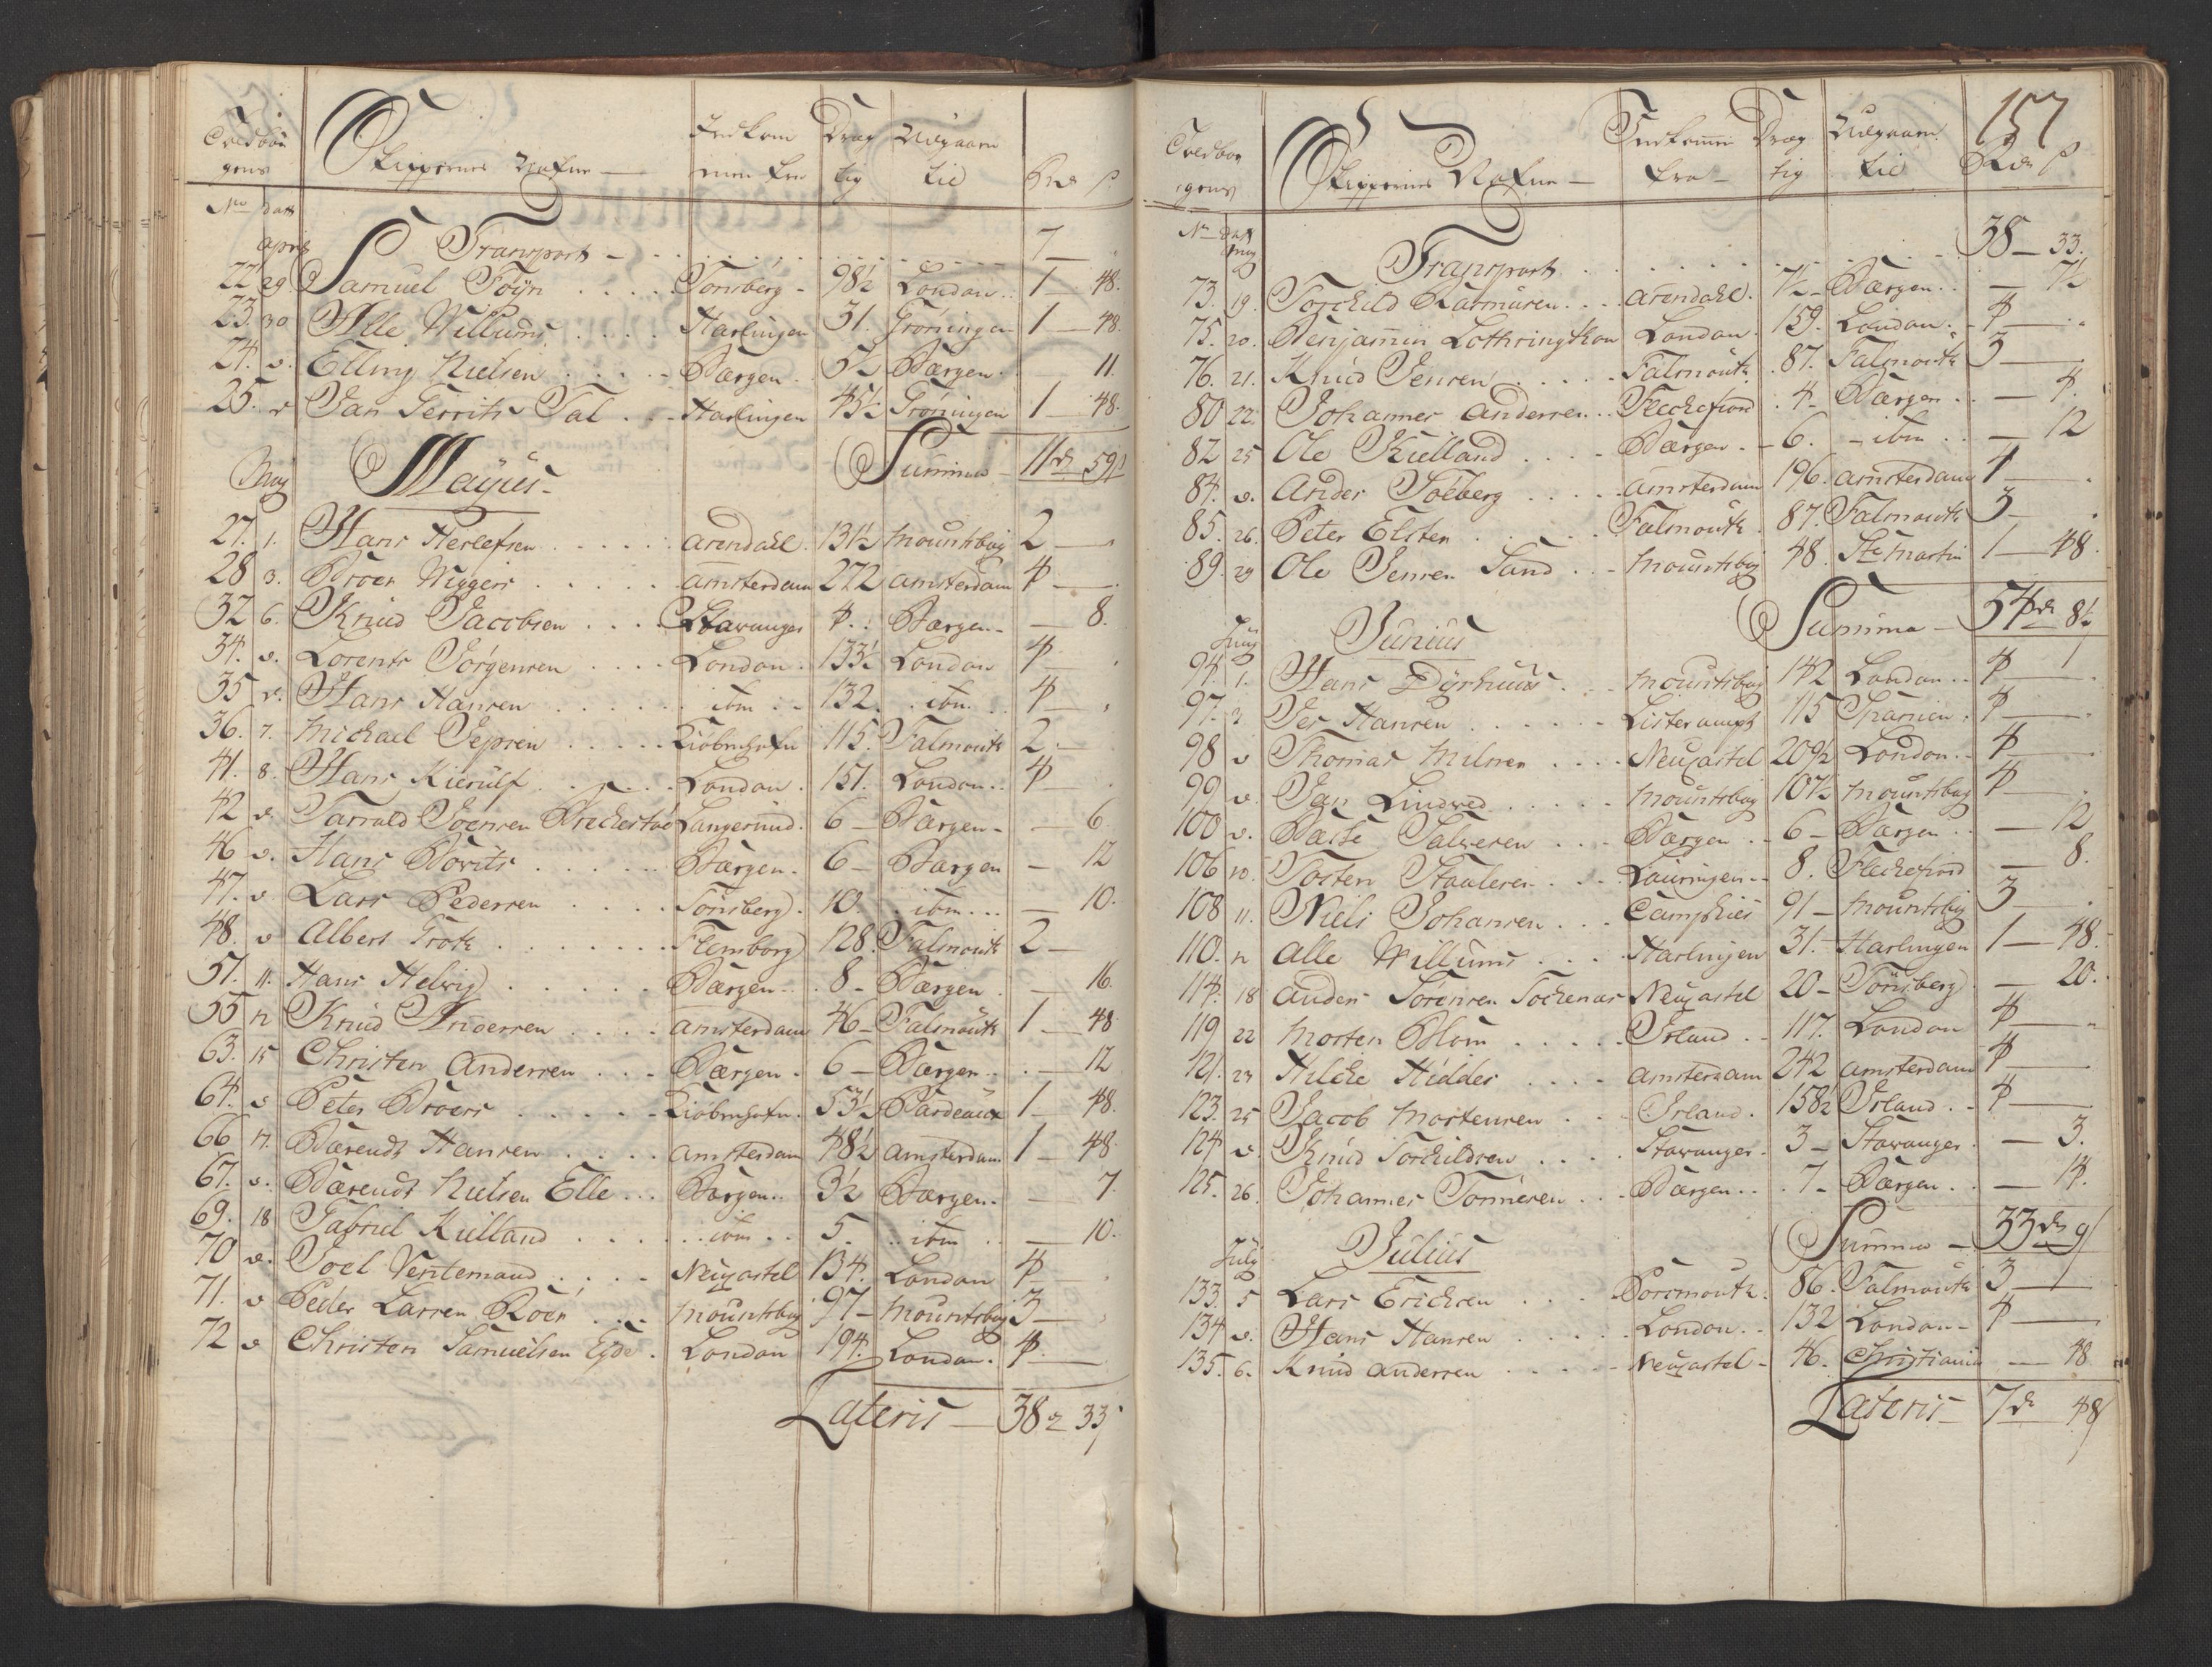 Toldbou Skippernes Nafne — Indkom Dræg Udgaaen
gens men fra tig til Rd ß
No Dato
April Transport — 7 —
22 29 Samuel Föÿn Tonsberg 98½ London 1 48
23 30 Alle Willums Harlingen 31 Gröningen 1 48
24 d Elling Nielsen Bærgen 5½ Bærgen — 11
25 d Jan Gerrits Tal Harlingen 45½ Gröningen 1 48
Summa — 11 d 59
May Mayüs
27 1 Hans Herlefsen Arendahl 131½ Mountsbay 2 —
28 3 Broer Wiggers Amsterdam 272 Amsterdam 4 —
32 6 Knud Jacobsen Stavanger 4 Bærgen — 8
34 d Lorents Jörgensen London 133½ London 4 —
35 d Hans Hansen ibm 132 ibm 4 —
36 7 Michael Jepsen Kiöbenhafn 115 Falmouth 2 —
41 8 Hans Kierülf London 151 London 4 —
42 d Tarrald Joensen Langesund 6 Bærgen — 6
46 d Hans Bovits Bærgen 6 Bærgen — 12
47 d Lars Pedersen Tönsberg 10 ibm — 10
48 d Albert Groth Flensborg 128 Falmouth 2 —
51 11 Hans Helvig Bærgen 8 Bærgen — 16
55 12 Knud Andersen Amsterdam 46 Falmouth 1 48
63 15 Christen Andersen Bærgen 6 Bærgen — 12
64 d Peter Broers Kiöbenhafn 53½ Bardeaux 1 48
66 17 Bærendt Hansen Amsterdam 48½ Amsterdam 1 48
67 d Bærendt Nielsen Elle Bærgen 3½ Bærgen — 7
69 18 Gabriel Kielland ibm 5 ibm — 10
70 d Joel Ventemand Neucastel 134 London 4 —
71 d Peder Larsen Roer Mountsbay 97 Mountsbay 3 —
72 d Christen Samuelsen Eyde London 194 London 4 —
Lateris — 38 d 33
157
Toldbou Skippernes Nafne — Indkommen Dræg Udgaaen
gens fra tig til Rd ß
No Dato
May Transport 38 — 33
73 19 Torchild Rasmusen Arendahl 7½ Bærgen — 7½
75 20 Benjamin Lothringthon London 159 London 4 —
76 21 Knud Jensen Falmouth 87 Falmouth 3 —
80 22 Johannes Andersen Fleckefiord 4 Bærgen — 4
82 25 Ole Kielland Bærgen 6 ibm — 12
84 d Ander Soeberg Amsterdam 196 Amsterdam 4 —
85 26 Peter Elsten Falmouth 87 Falmouth 3 —
89 29 Ole Jensen Sand Mountsbay 48 Ste Martin 1 — 48
Summa — 54 d 8½
Juny Junius
94 1 Hans Dÿrhuus Mountsbay 142 London 4 —
97 3 Jes Hansen 115 Spanien 4 —
98 d Thomas Milnsen Neucastel 209½ London 4 —
99 d Jan Lindved Mountsbay 107½ Mountsbay 4 —
100 d Salvesen Bærgen 6 Bærgen — 12
106 10 Tosten Staalesen 8 Fleckefiord — 8
108 11 Niels Johansen 91 Mountsbay 3 —
110 12 Alle Willums Harlingen 31 Harlingen 1 — 48
114 18 Anders Sörensen Neucastel 20 Tönsberg — 20
119 22 Morten Blom Irland 117 London 4 —
121 23 Hilche Hiddes Amsterdam 242 Amsterdam 4 —
123 25 Jacob Mortensen Irland 158½ Irland 4 —
124 d Knud Torchildsen Stavanger 3 Stavanger — 3
125 26 Johannes Tonnesen Bærgen 7 Bærgen — 14
Summa — 33 d 9
July Julius
133 5 Lars Erichsen Porsmouth 86 Falmouth 3 —
134 d Hans Hansen London 132 London 4 —
135 6 Knud Andersen Neucastel 46 Christiania — 48
Lateris — 7 d 48